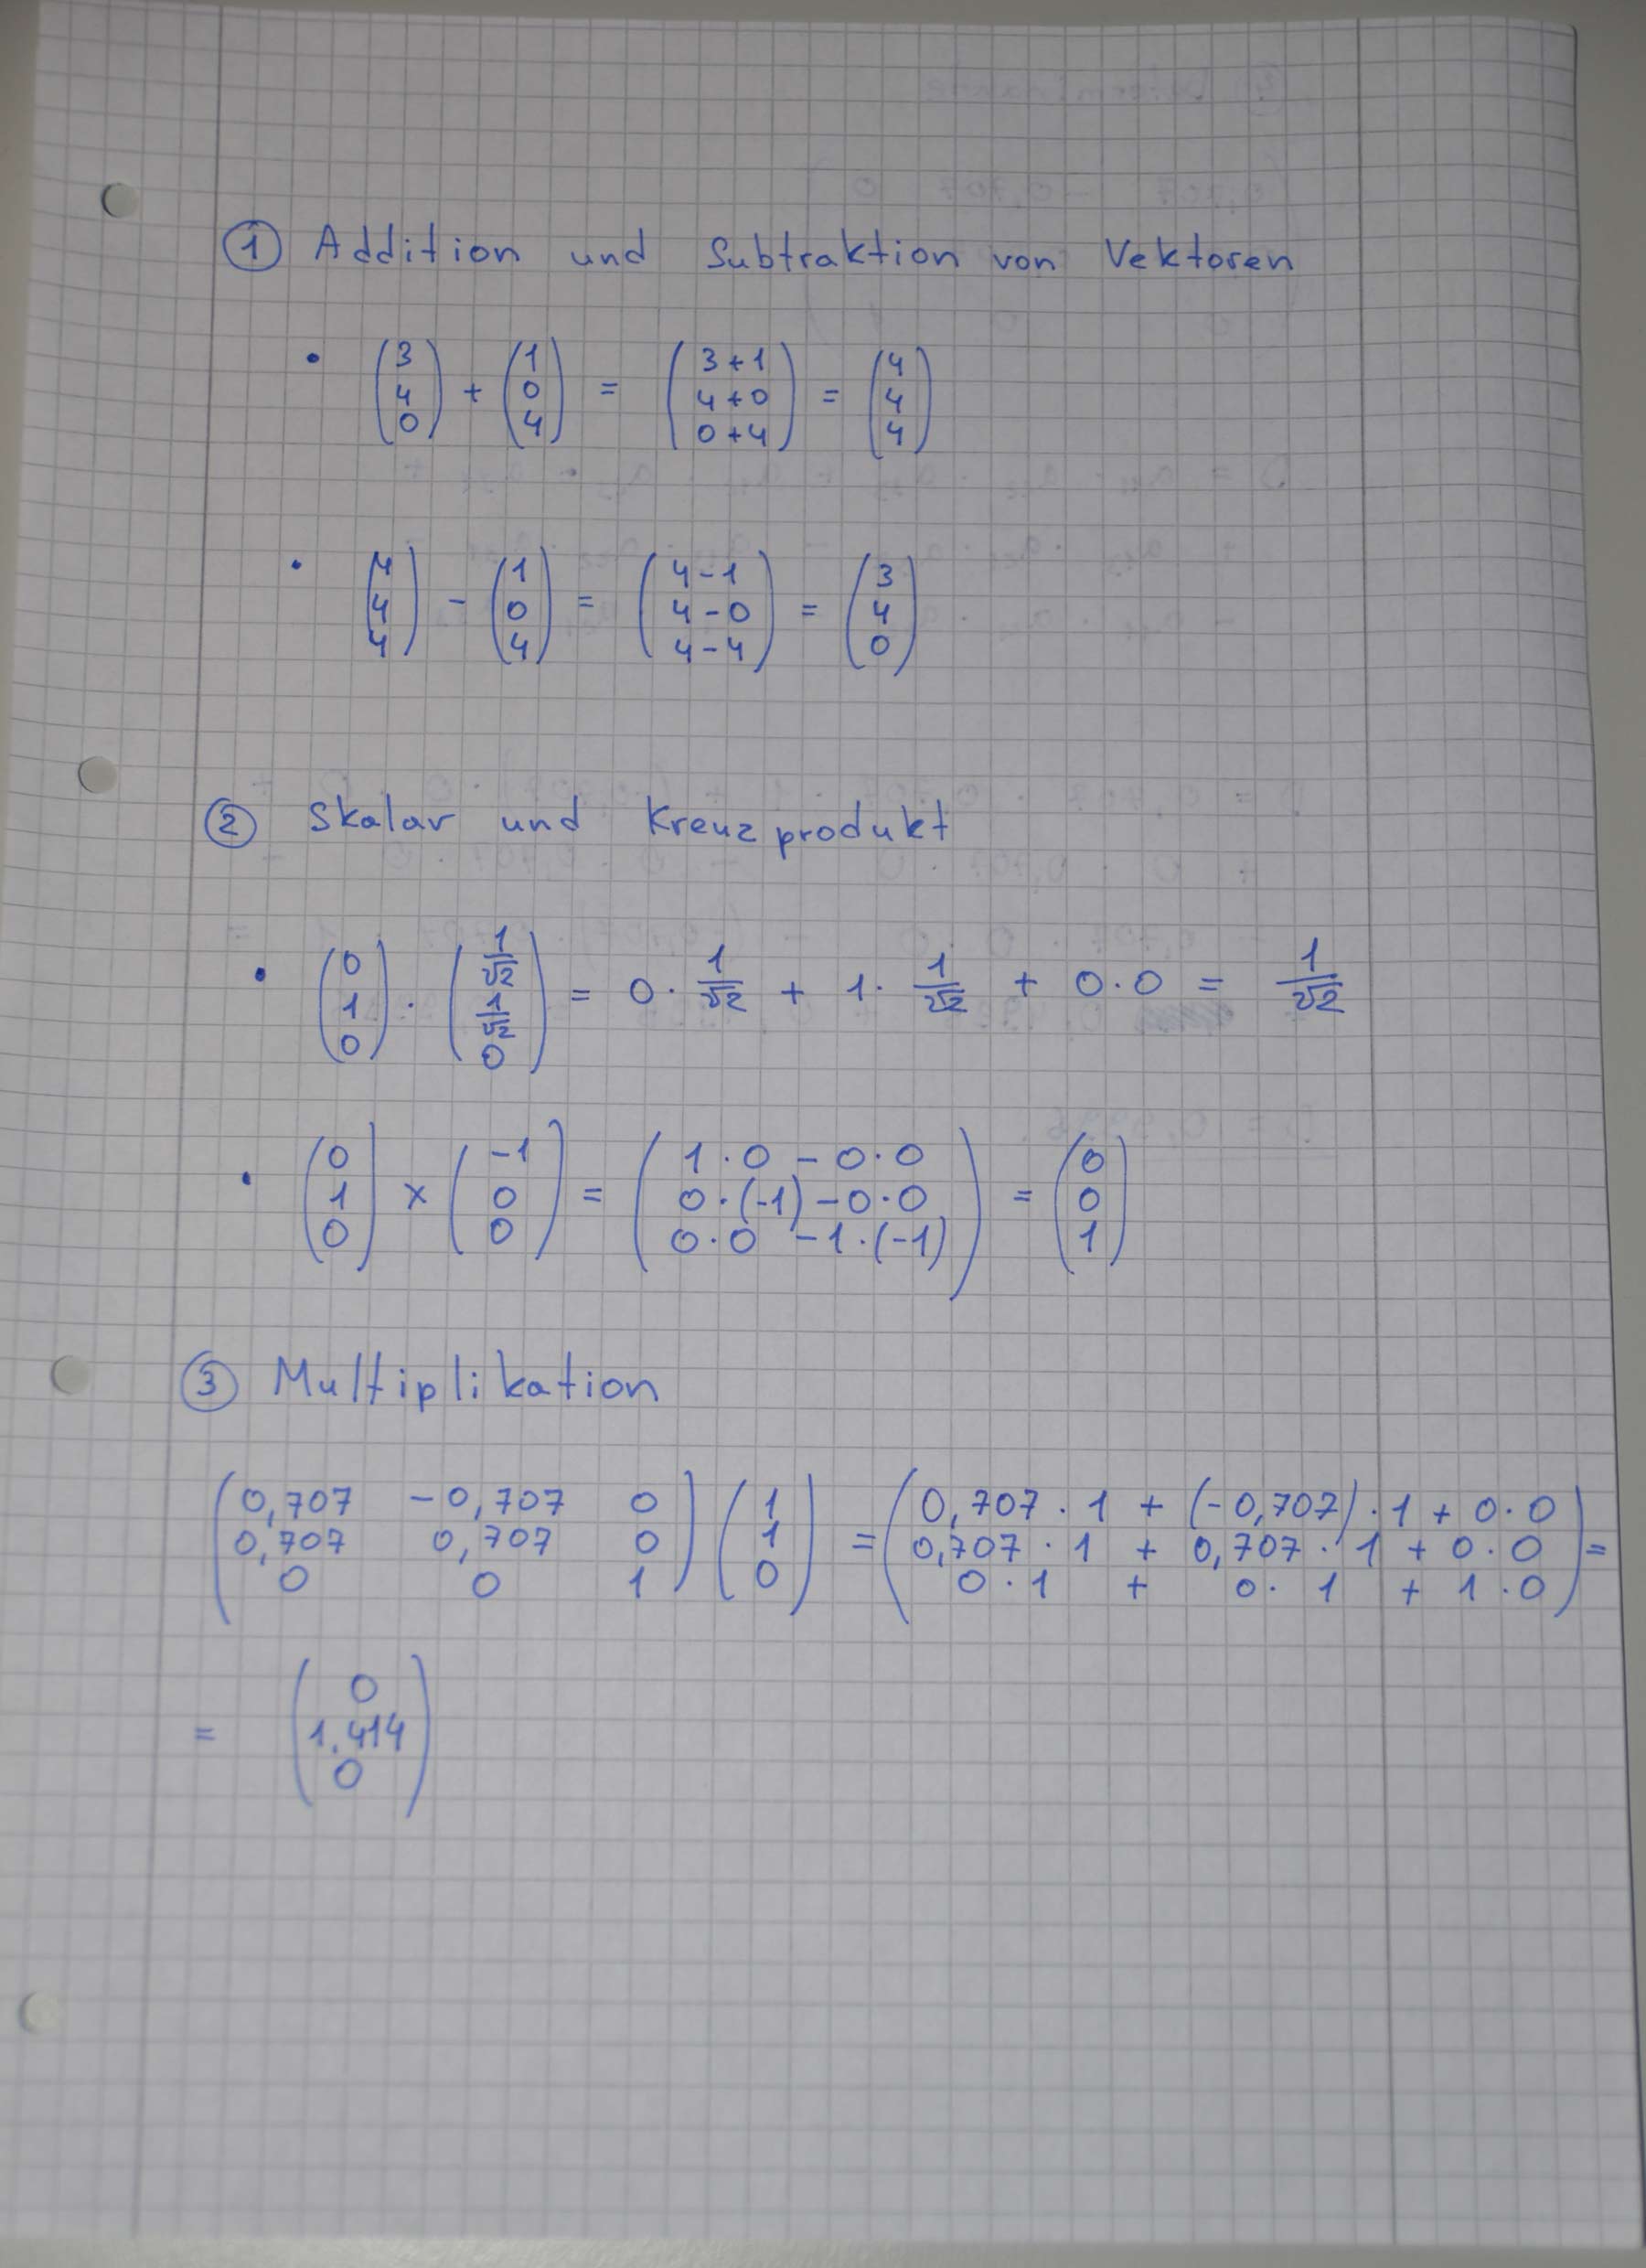 ① Addition und Subtraktion von Vektoren
• (3 4 0) + (1 0 4) = (3+1 4+0 0+4) = (4 4 4)
• (4 4 4) - (1 0 4) = (4-1 4-0 4-4) = (3 4 0)
② Skalar und Kreuzprodukt
• (0 1 0) · (1/√2 1/√2 0) = 0 · 1/√2 + 1 · 1/√2 + 0 · 0 = 1/√2
• (0 1 0) × (-1 0 0) = (1 · 0 - 0 · 0 0 · (-1) - 0 · 0 0 · 0 - 1 · (-1)) = (0 0 1)
③ Multiplikation
(0,707 -0,707 0 0,707 0,707 0 0 0 1) (1 1 0) = (0,707 · 1 + (-0,707) · 1 + 0 · 0 0,707 · 1 + 0,707 · 1 + 0 · 0 0 · 1 + 0 · 1 + 1 · 0) =
= (0 1.414 0)